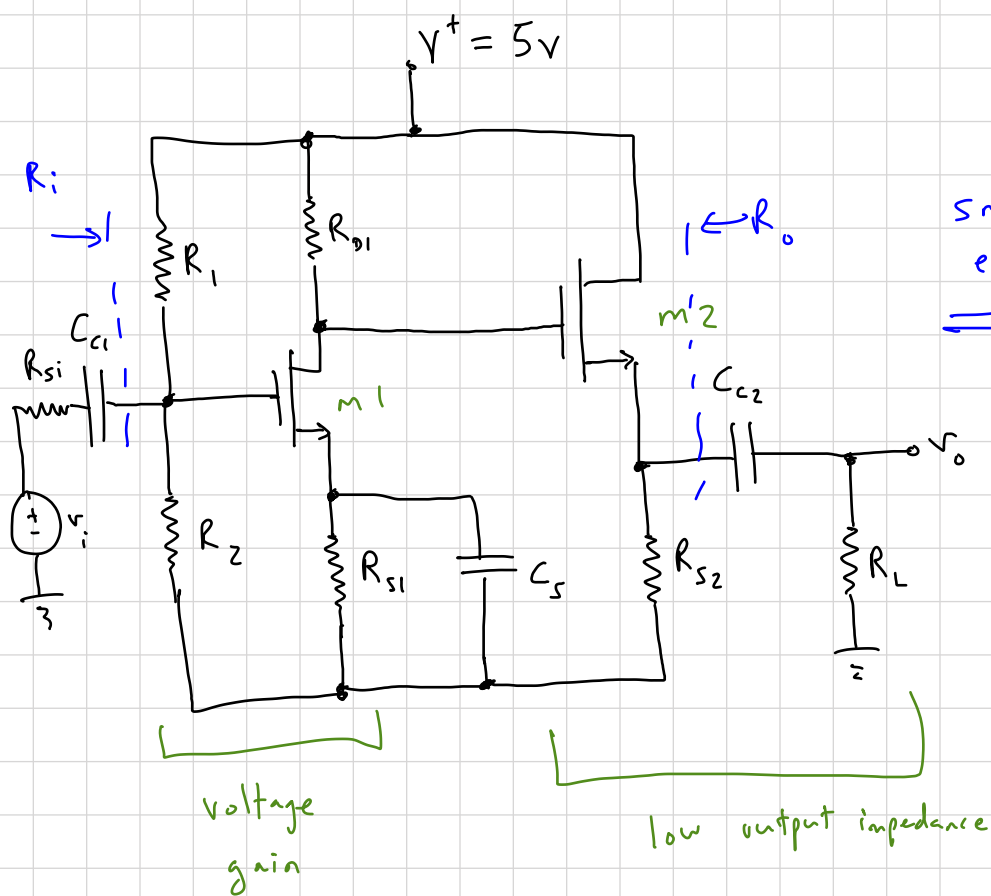 V⁺ = 5v
Ri
Ro
R1
RD1
m2
Cc1
Cc2
Rsi
m1
vo
vi
R2
RS1
CS
RS2
RL
voltage
gain
low output impedance